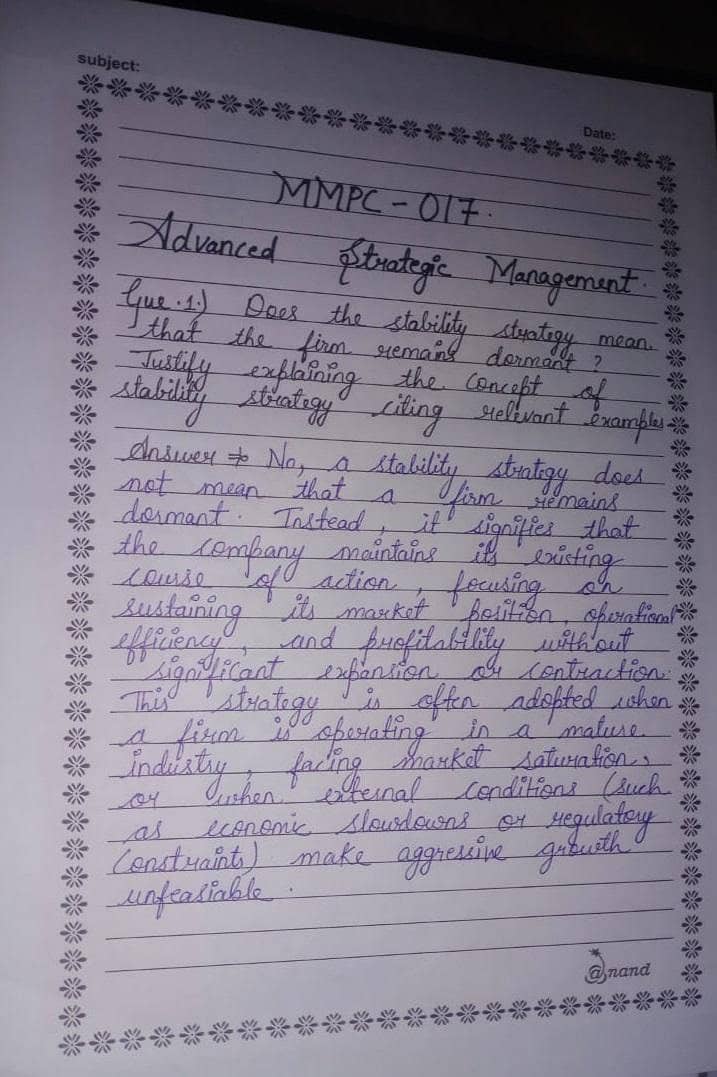 subject:
Date:
MMPC - 017.
Advanced Strategic Management.
Que.1.) Does the stability strategy mean
that the firm remains dormant ?
Justify explaining the concept of
stability strategy citing relevant examples
Answer ⇒ No, a stability strategy does
not mean that a firm remains
dormant. Instead, it signifies that
the company maintains its existing
course of action, focusing on
sustaining its market position, operational
efficiency, and profitability without
significant expansion or contraction.
This strategy is often adopted when
a firm is operating in a mature
industry, facing market saturation,
or when external conditions (such
as economic slowdowns or regulatory
constraints) make aggressive growth
unfeasiable.
@nand